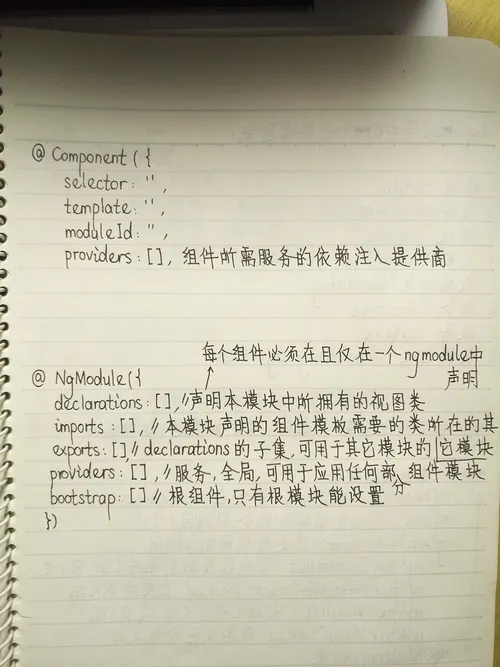 @ Component ( {
selector: '',
template: '',
moduleId: '',
providers: [], 组件所需服务的依赖注入提供商
每个组件必须在且仅在一个ngmodule中
声明
@ NgModule({
declarations: [], //声明本模块中所拥有的视图类
imports: [], //本模块声明的组件模板需要的类所在的其
它模块
exports: [] // declarations的子集,可用于其它模块的
组件模块
providers: [], //服务,全局,可用于应用任何部
分
bootstrap: [] // 根组件,只有根模块能设置
})